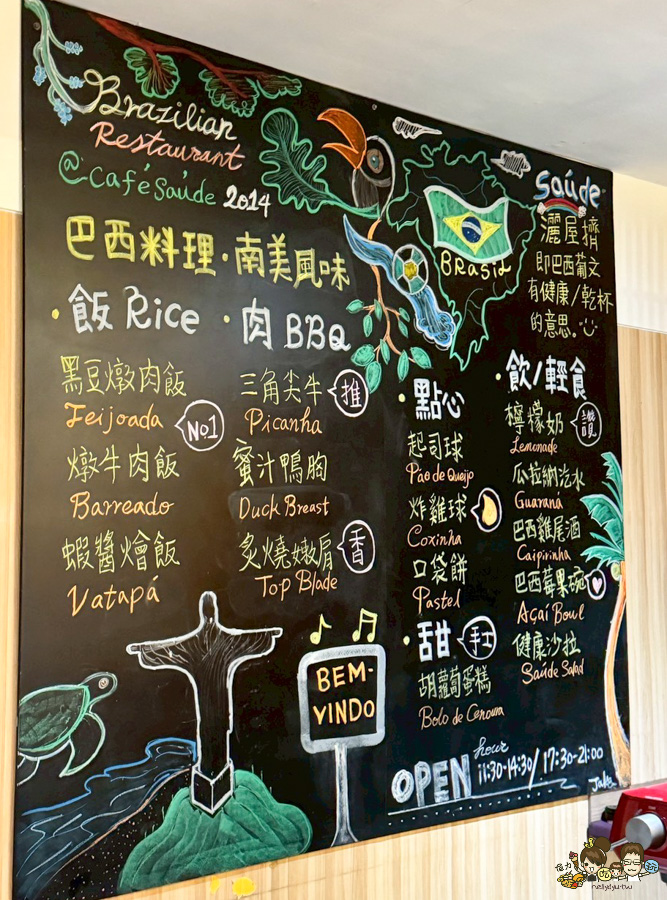 Brazilian
Restaurant
@·Café Saúde 2014
巴西料理·南美風味
·飯 Rice
黑豆燉肉飯
Feijoada
No.1
燉牛肉飯
Barreado
蝦醬燴飯
Vatapá
·肉 BBQ
三角尖牛
推
Picanha
蜜汁鴨胸
Duck Breast
炙燒嫩肩
香
Top Blade
BRASIL
Saúde
灑屋擠
即巴西葡文
有健康/乾杯
的意思。
·點心
起司球
Pão de Queijo
炸雞球
Coxinha
口袋餅
Pastel
·甜
手工
胡蘿蔔蛋糕
Bolo de Cenoura
·飲/輕食
檸檬奶
Lemonade
瓜拉納汽水
Guaraná
巴西雞尾酒
Caipirinha
巴西莓果碗
Açaí Bowl
健康沙拉
Saúde Salad
BEM-
VINDO
OPEN hour 11:30-14:30/17:30-21:00
Jake
nellydyu.tw